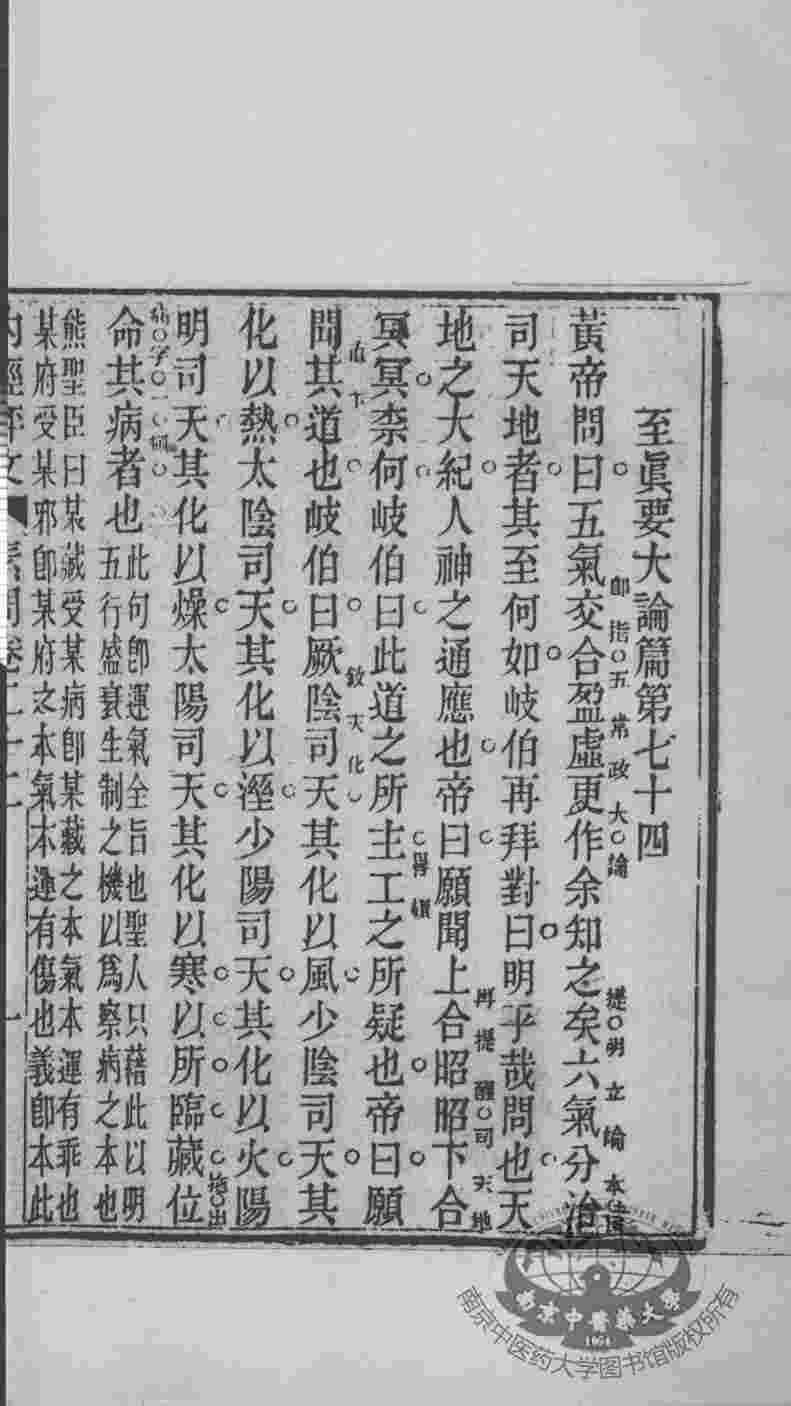 至眞要大論篇第七十四
黃帝問曰五氣交合盈虛更作余知之矣六氣分治
卽指五常政大論
提明立論本
司天地者其至何如岐伯再拜對曰明乎哉問也天
地之大紀人神之通應也帝曰願聞上合昭昭下合
再提醒司天地
冥冥柰何岐伯曰此道之所主工之所疑也帝曰願
聞其道也岐伯曰厥陰司天其化以風少陰司天其
敘天化
化以熱太陰司天其化以溼少陽司天其化以火陽
明司天其化以燥太陽司天其化以寒以所臨藏位
拖出
病字一
命其病者也
此句卽運氣全旨也聖人只藉此以明
五行盛衰生制之機以爲察病之本也
熊聖臣曰某藏受某病卽某藏之本氣本運有乖也
某府受某邪卽某府之本氣本運有傷也義卽本此
內經評文 素問卷二十二 一
南京中醫藥大學
1954
南京中医药大学图书馆版权所有